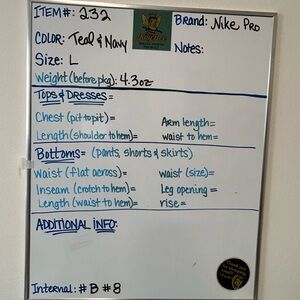 ITEM#: 232
Brand: Nike Pro
COLOR: Teal & Navy
Notes:
Size: L
Weight (before pkg): 4.3oz
Tops & Dresses=
Chest (pit to pit)=
Arm length=
Length (shoulder to hem)=
waist to hem=
Bottoms= (pants, shorts & skirts)
Waist (flat across)=
waist (size)=
Inseam (crotch to hem)=
Leg opening=
Length (waist to hem)=
rise=
ADDITIONAL INFO:
Internal: # B # 8